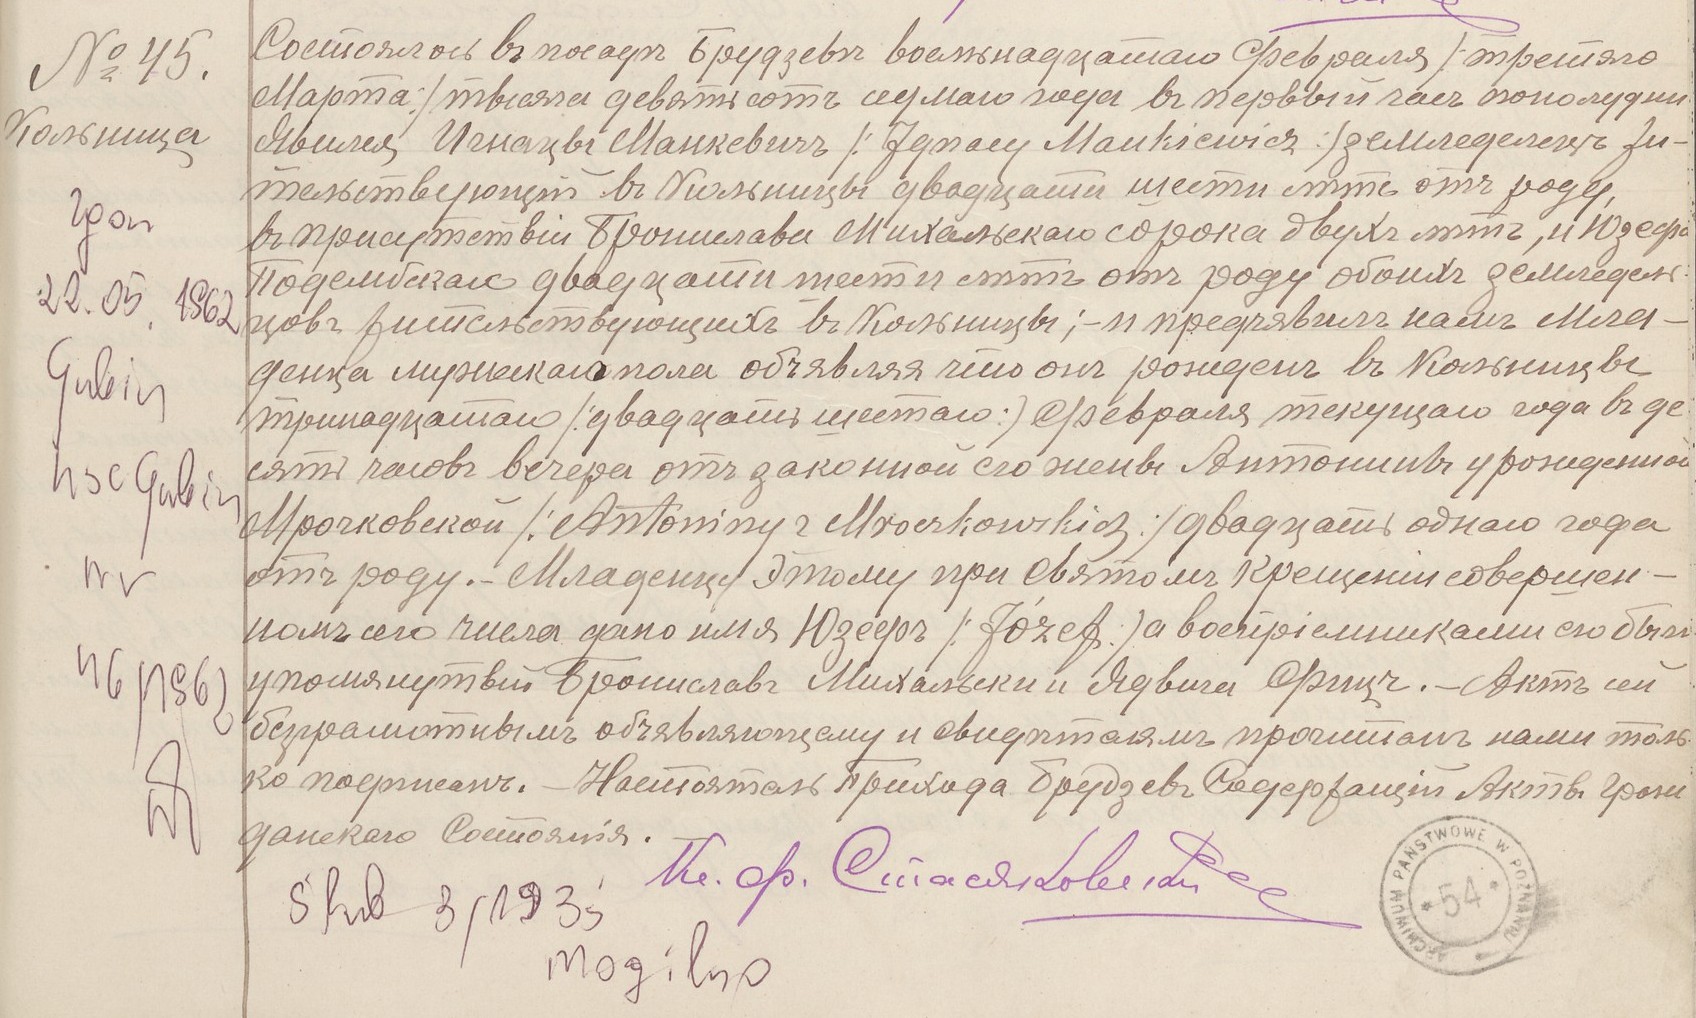 № 45.
Кольница
Состоялось въ посадѣ Брудзевѣ восьмнадцатаго Февраля /: третяго
Марта :/ тысяча девятьсотъ седмаго года въ первый часъ пополудни
Явился Игнацы Манкевичъ /: Ignacy Mankiewicz :/ земледелецъ жи-
тельствующій въ Кольницы двадцати шести лѣтъ отъ роду,
въ присутствіи Бронислава Михальскаго сорока двухъ лѣтъ, и Юзефа
Подембскаго двадцати шести лѣтъ отъ роду обоихъ земледель-
цовъ жительствующихъ въ Кольницы; – и предъявилъ намъ Мла-
денца мужескаго пола объявляя что онъ рожденъ въ Кольницы
тринадцатаго /: двадцать шестаго :/ Февраля текущаго года въ де-
сять часовъ вечера отъ законной его жены Антонины урожденной
Мрочковской /: Antoniny z Mroczkowskich :/ двадцать однаго года
отъ роду. – Младенцу этому при Святомъ Крещеніи совершен-
номъ сего числа дано имя Юзефъ /: Józef :/ а воспріемниками его были
упомянутый Брониславъ Михальски и Ядвига Фрицъ. – Актъ сей
безграмотнымъ объявляющему и свидѣтелямъ прочитанъ нами толь-
ко подписанъ. – Настоятель Прихода Брудзевъ Содержащій Акты Граж-
данскаго Состоянія.
Кс. Ф. Стасяковский
zgon
22.05.1962
Gubin
USC Gubin
nr
46/1962
Ślub 3/1935
Mogilno
ARCHIWUM PAŃSTWOWE W POZNANIU
* 54 *